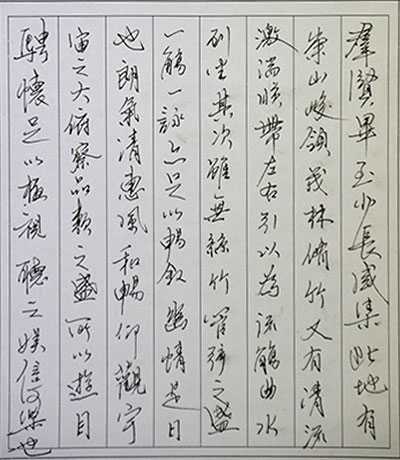 羣賢畢至少長咸集此地有
崇山峻領茂林脩竹又有清流
激湍暎帶左右引以為流觴曲水
列坐其次雖無絲竹管弦之盛
一觴一詠亦足以暢叙幽情是日
也朗氣清惠風和暢仰觀宇
宙之大俯察品類之盛所以遊目
騁懷足以極視聽之娛信可樂也